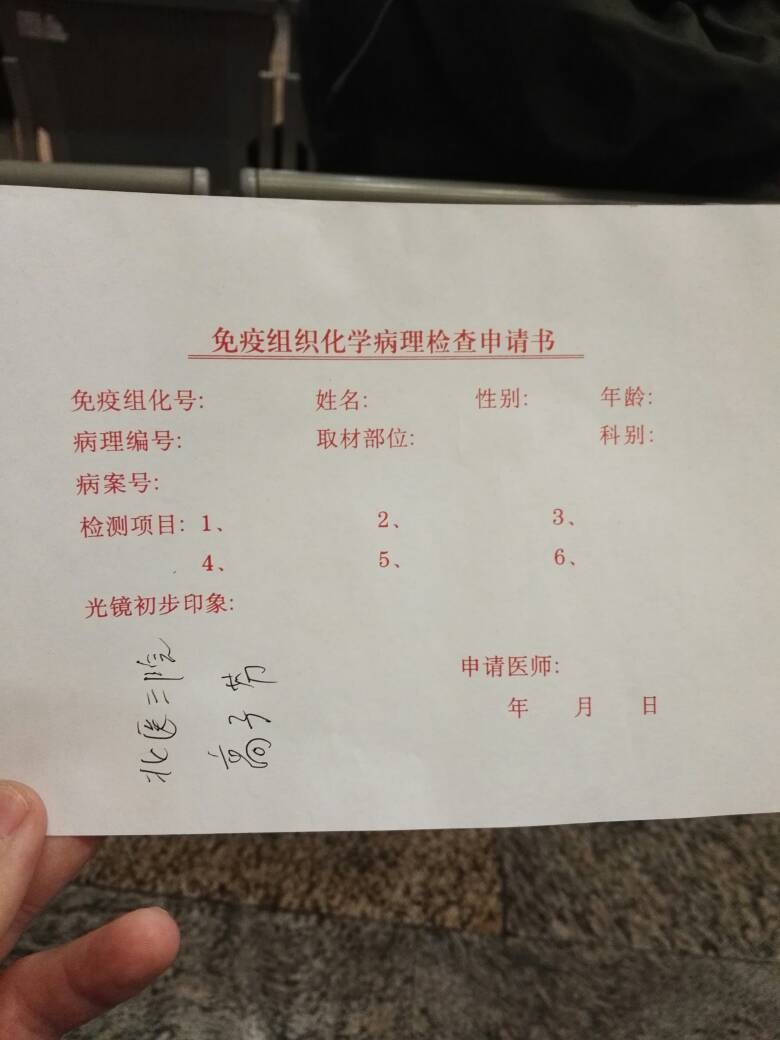 免疫组织化学病理检查申请书
免疫组化号: 姓名: 性别: 年龄:
病理编号: 取材部位: 科别:
病案号:
检测项目: 1、 2、 3、
4、 5、 6、
光镜初步印象:
申请医师:
年 月 日
北医二院
高子芳